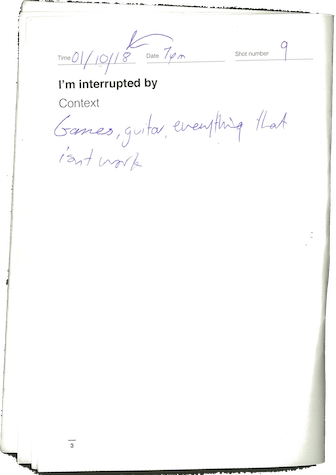 Time 01/10/18 Date 7pm Shot number 9
I'm interrupted by
Context
Games, guitar, everything that
isnt work
3